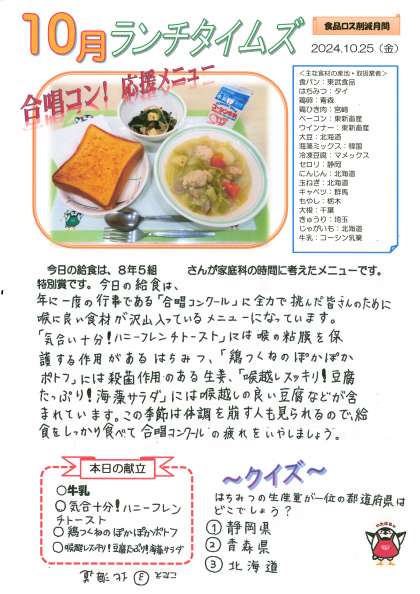 10月ランチタイムズ
食品ロス削減月間
2024.10.25（金）
合唱コン！応援メニュー
＜主な食材の産地・取扱業者＞
食パン：東武食品
はちみつ：タイ
鶏卵：青森
鶏ひき肉：宮崎
ベーコン：東新畜産
ウインナー：東新畜産
大豆：北海道
海藻ミックス：韓国
冷凍豆腐：マメックス
セロリ：静岡
にんじん：北海道
玉ねぎ：北海道
キャベツ：群馬
もやし：栃木
大根：千葉
きゅうり：埼玉
じゃがいも：北海道
牛乳：コーシン乳業
今日の給食は、８年５組　　さんが家庭科の時間に考えたメニューです。
特別賞です。今日の給食は、
年に一度の行事である「合唱コンクール」に全力で挑んだ皆さんのために
喉に良い食材が沢山入っているメニューになっています。
「気合い十分！ハニーフレンチトースト」には喉の粘膜を保
護する作用があるはちみつ、「鶏つくねのぽかぽか
ポトフ」には殺菌作用のある生姜、「喉越しスッキリ！豆腐
たっぷり！海藻サラダ」には喉越しの良い豆腐などが含
まれています。この季節は体調を崩す人も見られるので、給
食をしっかり食べて合唱コンクールの疲れをいやしましょう。
本日の献立
○牛乳
○気合十分！ハニーフレン
チトースト
○鶏つくねのぽかぽかポトフ
○喉越しスッキリ！豆腐たっぷり！海藻サラダ
～クイズ～
はちみつの生産量が一位の都道府県は
どこでしょう？
①静岡県
②青森県
③北海道
こたえ ③ 北海道